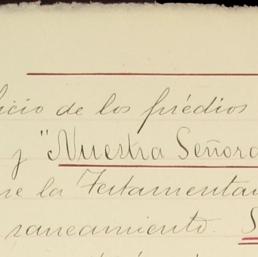 icio de los prédios
y "Nuestra Señora
ne la Testamenta
saneamiento. S